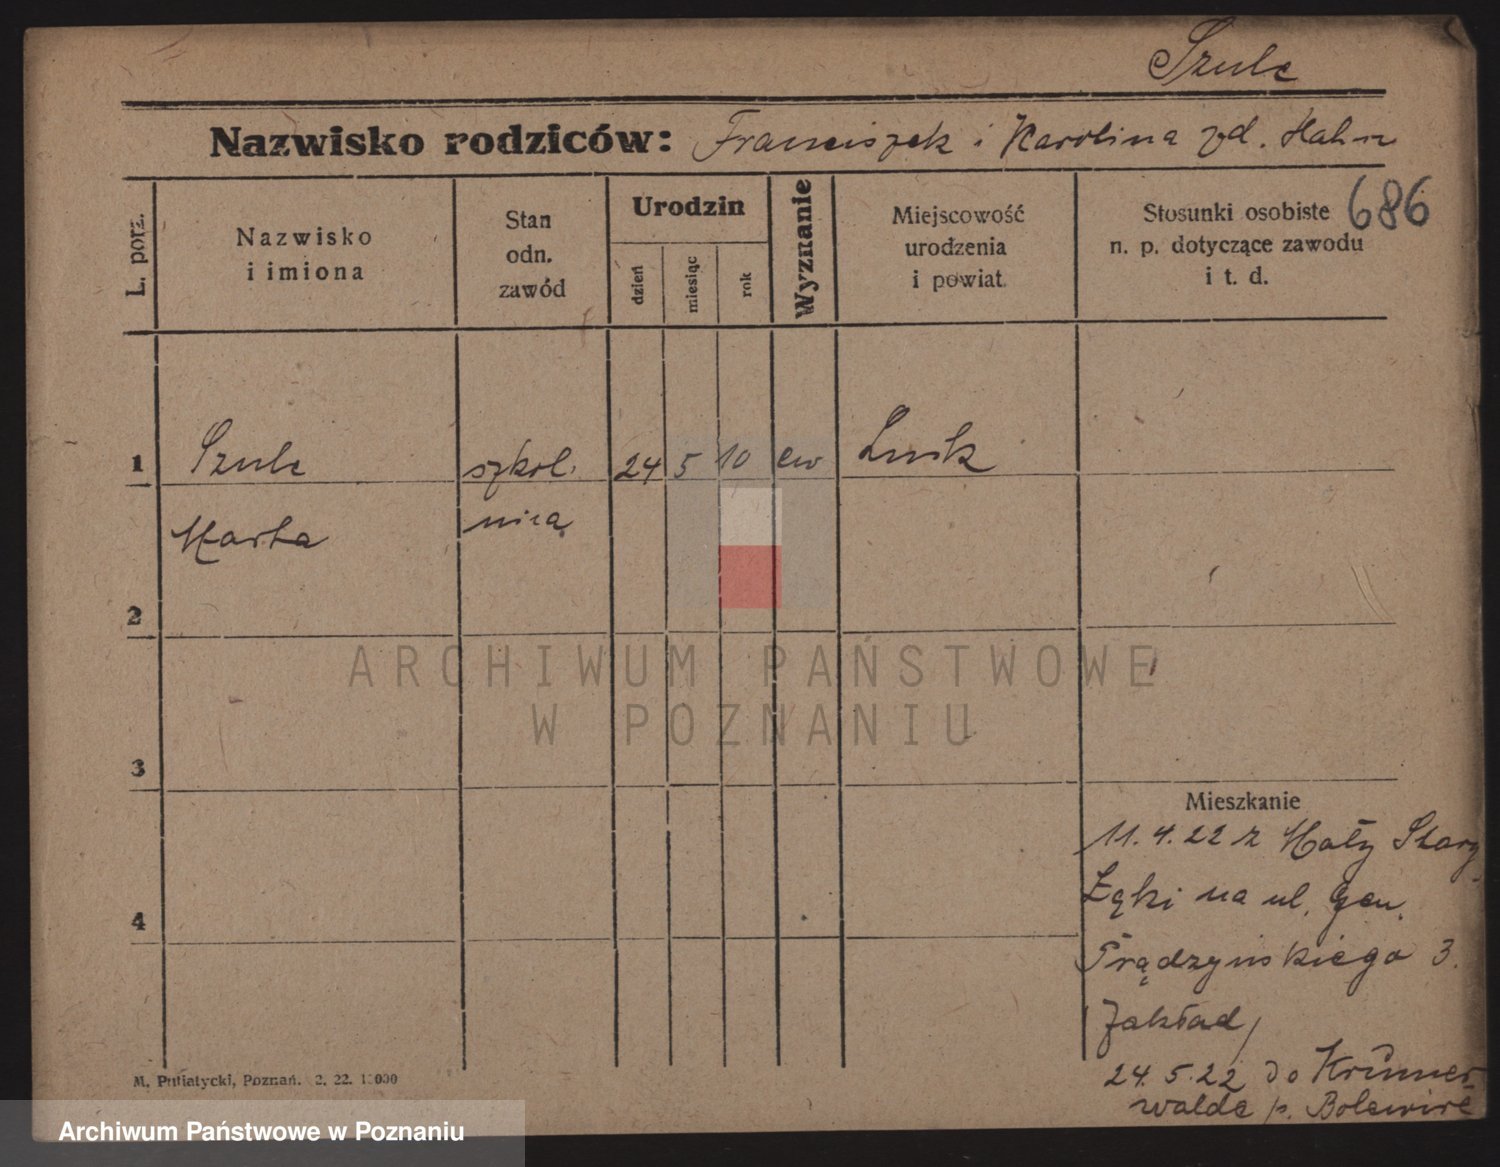 Szulc
Nazwisko rodziców: Franciszek i Karolina zd. Hahn
686
L. porz.
Nazwisko
i imiona
Stan
odn.
zawód
Urodzin
dzień
miesiąc
rok
Wyznanie
Miejscowość
urodzenia
i powiat.
Stosunki osobiste
n. p. dotyczące zawodu
i t. d.
1 Szulc szkol. 24 5 10 ew
Marta nicą
2
3
4
Mieszkanie
11.4.22 z Mały Stary
Łęki na ul. Gen.
Prądzyńskiego 3.
Zakład,
24.5.22 do
walde p.
M. Putiatycki, Poznań. 2. 22.
ARCHIWUM PAŃSTWOWE
W POZNANIU
Archiwum Państwowe w Poznaniu